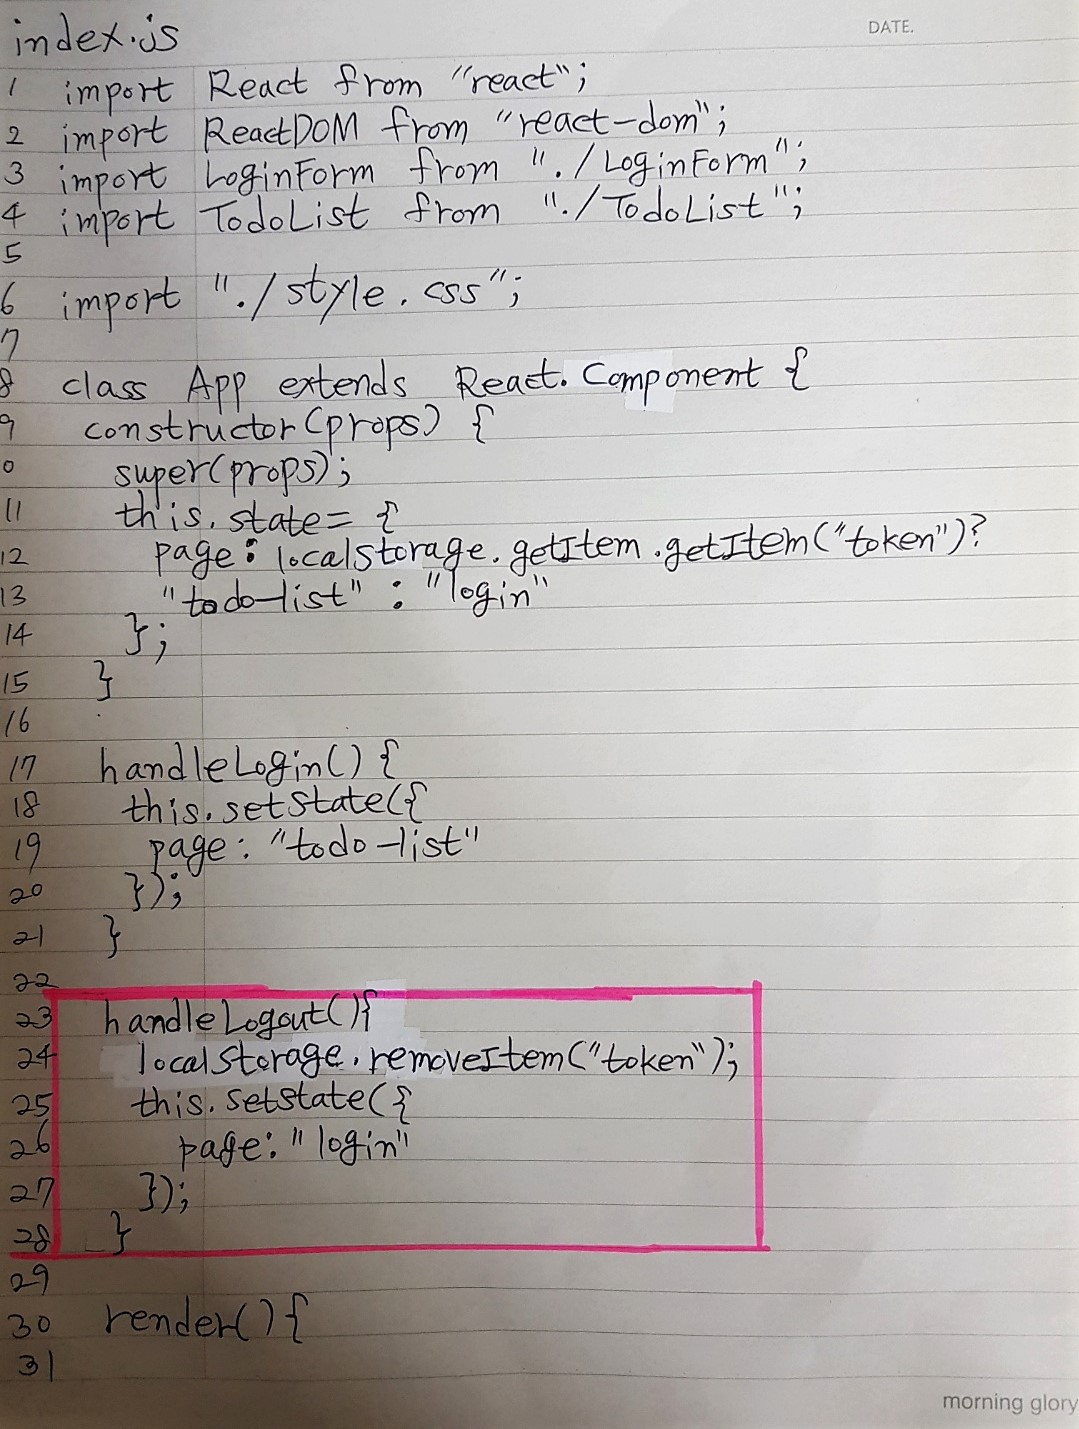 index.js
DATE.
1 import React from "react";
2 import ReactDOM from "react-dom";
3 import LoginForm from "./LoginForm";
4 import TodoList from "./TodoList";
5
6 import "./style.css";
7
8 class App extends React.Component {
9 constructor(props) {
0 super(props);
11 this.state= {
12 page: localstorage.getItem.getItem("token")?
13 "todo-list" : "login"
14 };
15 }
16
17 handleLogin() {
18 this.setState({
19 page: "todo-list"
20 });
21 }
22
23 handleLogout(){
24 localStorage.removeItem("token");
25 this.setState({
26 page: "login"
27 });
28 }
29
30 render(){
31
morning glory